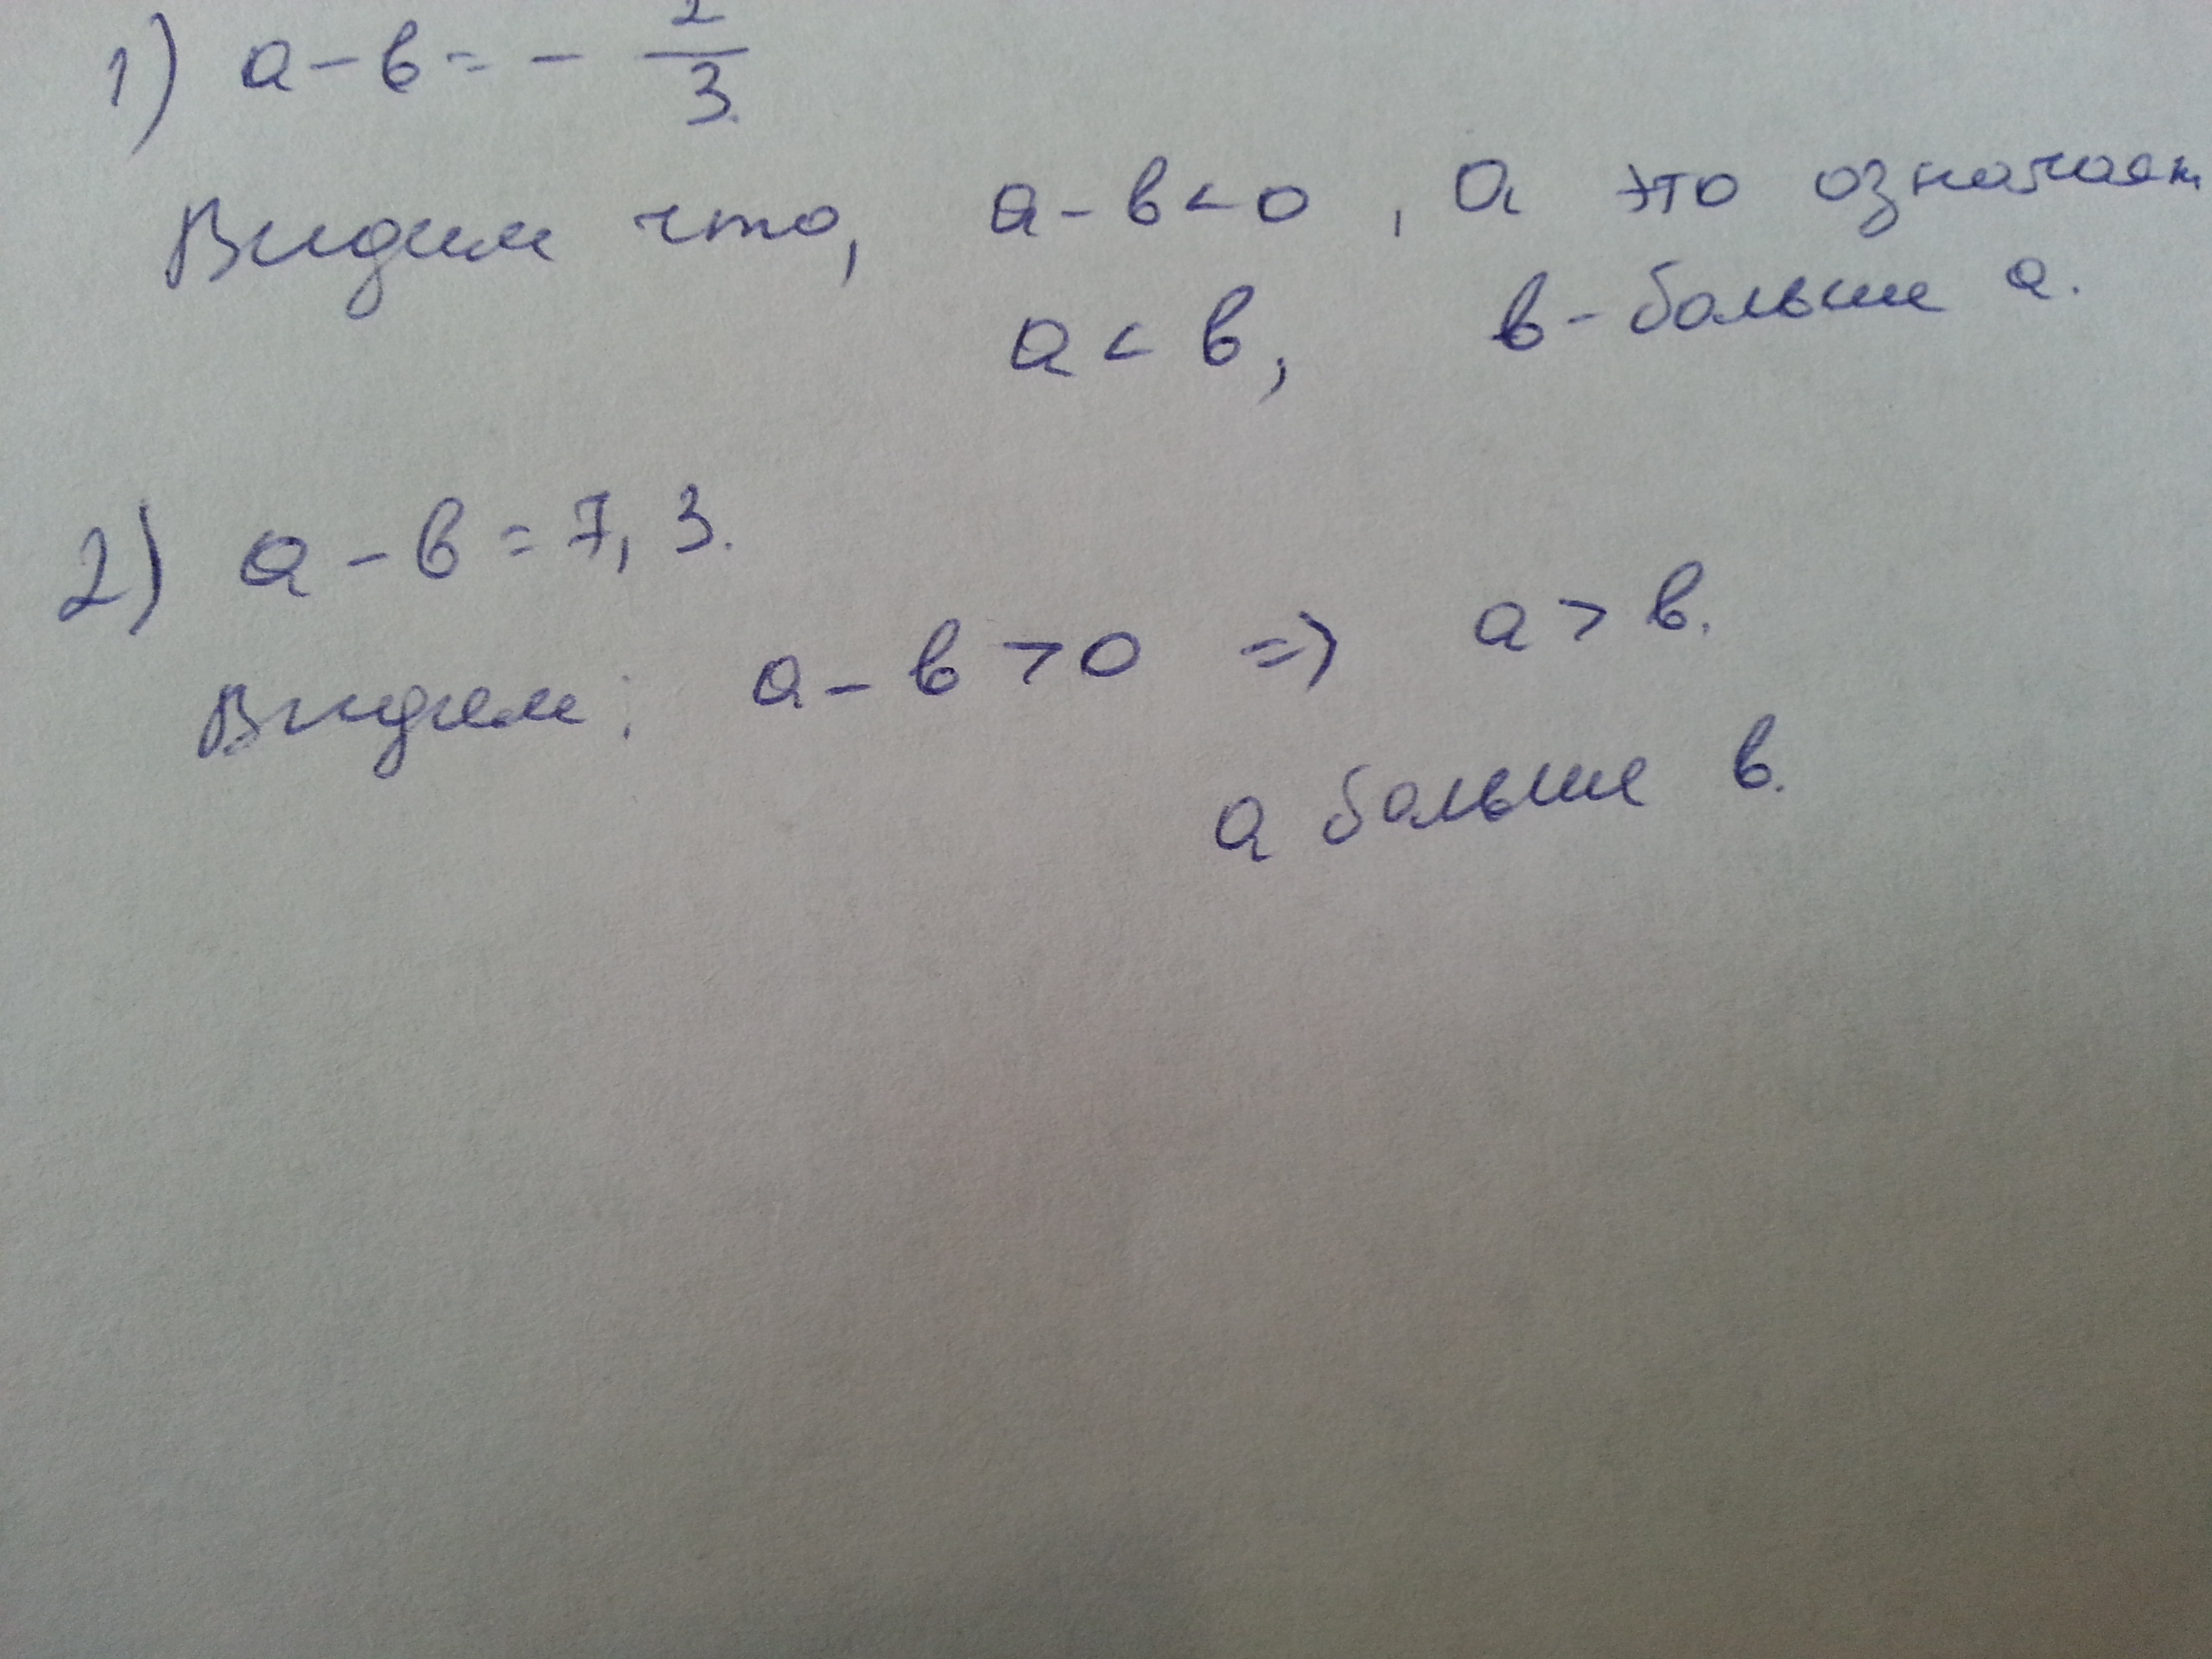 1) a - в = - 2/3.
Видим что, a - в < 0, а это означает
a < в, в - больше а.
2) a - в = 7,3.
Видим: a - в > 0 => a > в.
а больше в.